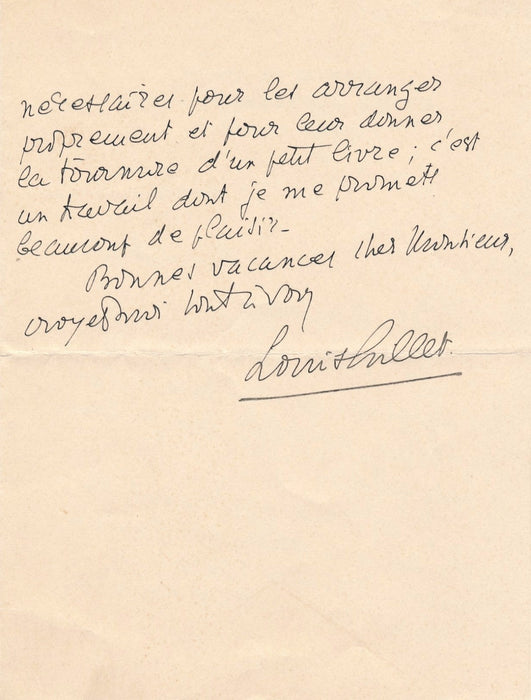 nécessaires pour les arranger
proprement et pour leur donner
la tournure d'un petit livre ; c'est
un travail dont je me promets
beaucoup de plaisir.
Bonnes vacances cher Monsieur,
croyez moi tout à vous
Louis Gillet.